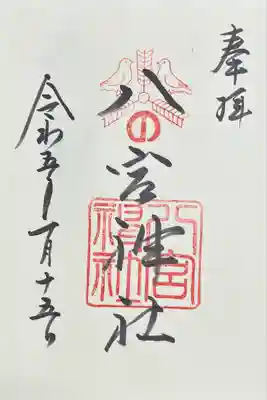 奉拝
八の宮神社
八宮神社
令和五年一月十五日